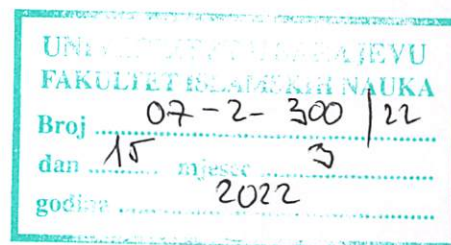 UNIVERZITET U SARAJEVU
FAKULTET ISLAMSKIH NAUKA
Broj 07-2-300/22
dan 15 mjesec 3
godina 2022